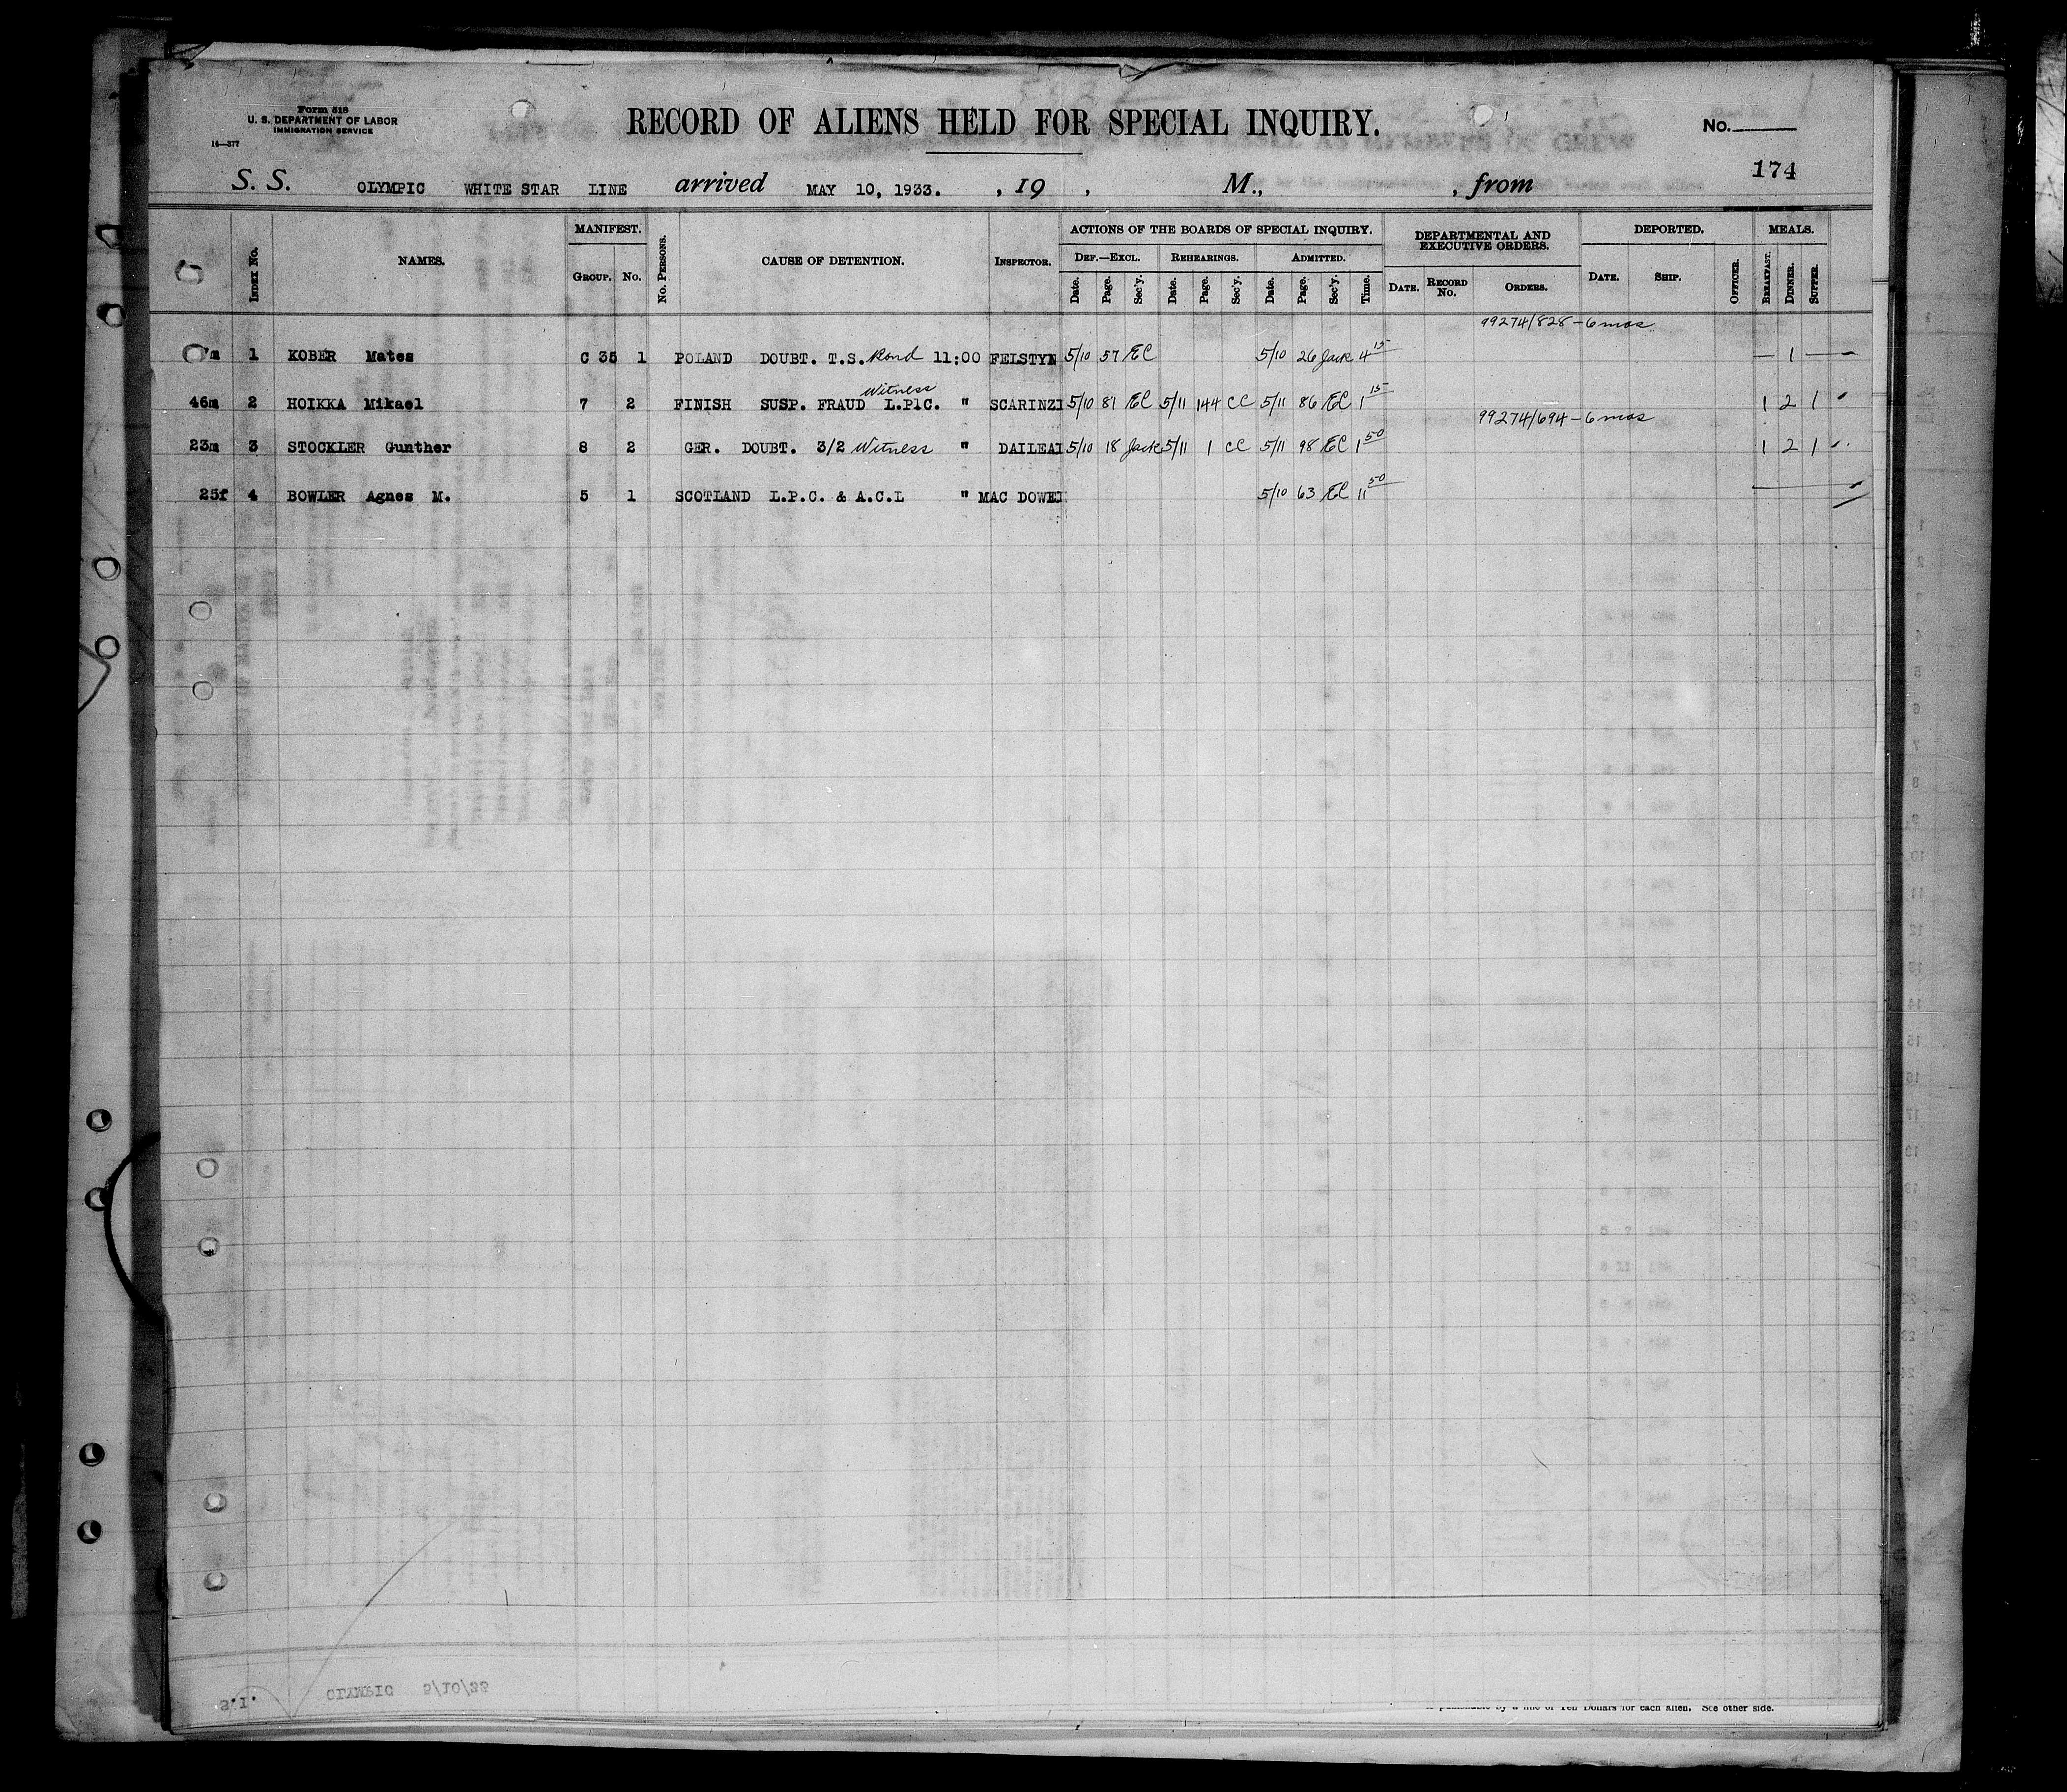 Form 518
U. S. DEPARTMENT OF LABOR
IMMIGRATION SERVICE
14—377
RECORD OF ALIENS HELD FOR SPECIAL INQUIRY.
No.
174
S. S. OLYMPIC WHITE STAR LINE arrived MAY 10, 1933. , 19 , M., , from
INDEX No. NAMES. MANIFEST. GROUP. No. No. PERSONS. CAUSE OF DETENTION. INSPECTOR. ACTIONS OF THE BOARDS OF SPECIAL INQUIRY. DEF.—EXCL. Date. Page. Sec'y. REHEARINGS. Date. Page. Sec'y. ADMITTED. Date. Page. Sec'y. Time. DEPARTMENTAL AND EXECUTIVE ORDERS. DATE. RECORD No. ORDERS. DEPORTED. DATE. SHIP. OFFICER. MEALS. BREAKFAST. DINNER. SUPPER.
99274/828 - 6 mos
m 1 KOBER Mates C 35 1 POLAND DOUBT. T.S. 11:00 FELSTYN 5/10 57 EC 5/10 26 Jack 4 15 — 1 —
Witness
46m 2 HOIKKA Mikael 7 2 FINISH SUSP. FRAUD L.P1C. " SCARINZI 5/10 81 EC 5/11 144 CC 5/11 86 EC 1 15 1 2 1
99274/694 - 6 mos
23m 3 STOCKLER Gunther 8 2 GER. DOUBT. 3/2 Witness " DAILEAI 5/10 18 Jack 5/11 1 CC 5/11 98 EC 1 50 1 2 1
25f 4 BOWLER Agnes M. 5 1 SCOTLAND L.P.C. & A.C.L " MAC DOWE 5/10 63 EC 11 50
S.I. OLYMPIC 5/10/33
for each alien. See other side.